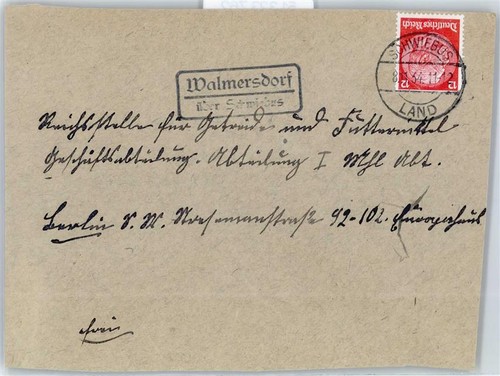 Deutsches Reich
12 12
SCHWIEBUS
LAND
Walmersdorf
über Schwiebus
Reichsstelle für Getreide und Futtermittel
Geschäftsabteilung. Abteilung I Mhl Abt.
Berlin S. W. Stresemannstraße 92-102. Europahaus
frei